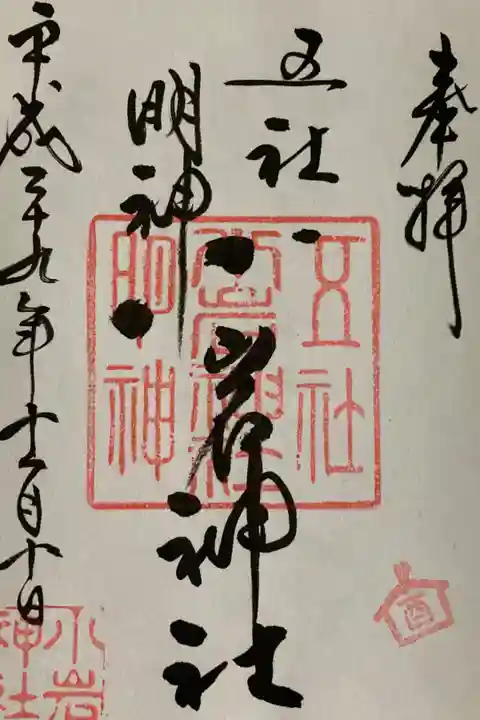 奉拝
五社
明神
小岩神社
平成二十九年十一月十日
五社
小岩神社
明神
小岩
神社
酉